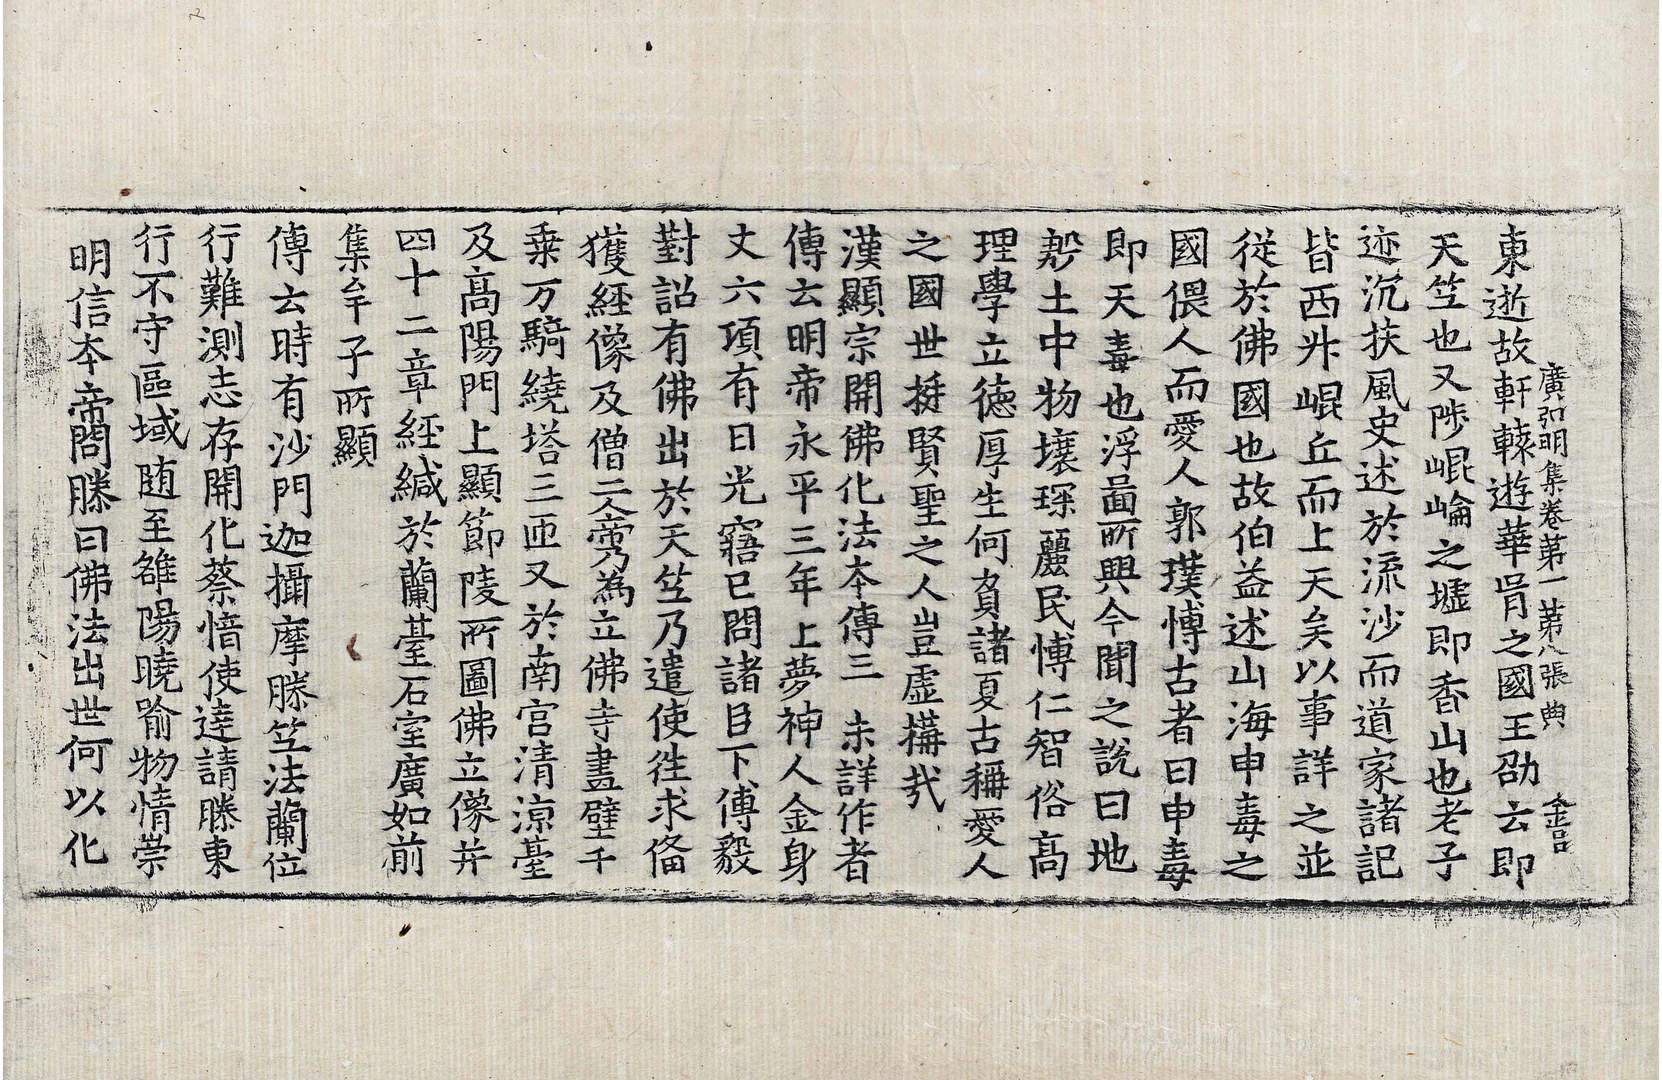 廣弘明集卷第一 第八張 典 金呂
東逝故軒轅遊華胥之國王劭云即
天竺也又陟崐崘之墟即香山也老子
迹沉扶風史述於流沙而道家諸記
皆西升崐丘而上天矣以事詳之並
從於佛國也故伯益述山海申毒之
國偎人而愛人郭璞博古者曰申毒
即天毒也浮圖所興今聞之說曰地
殷土中物壤琛麗民博仁智俗高
理學立德厚生何負諸夏古稱愛人
之國世挺賢聖之人豈虛構哉
漢顯宗開佛化法本傳三 未詳作者
傳云明帝永平三年上夢神人金身
丈六項有日光寤已問諸臣下傅毅
對詔有佛出於天竺乃遣使往求俻
獲經像及僧二人帝乃為立佛寺畫壁千
乗万騎繞塔三匝又於南宮清涼臺
及高陽門上顯節陵所圖佛立像并
四十二章經緘於蘭臺石室廣如前
集牟子所顯
傳云時有沙門迦攝摩騰竺法蘭位
行難測志存開化蔡愔使達請騰東
行不守區域随至雒陽曉喻物情崇
明信本帝問騰曰佛法出世何以化